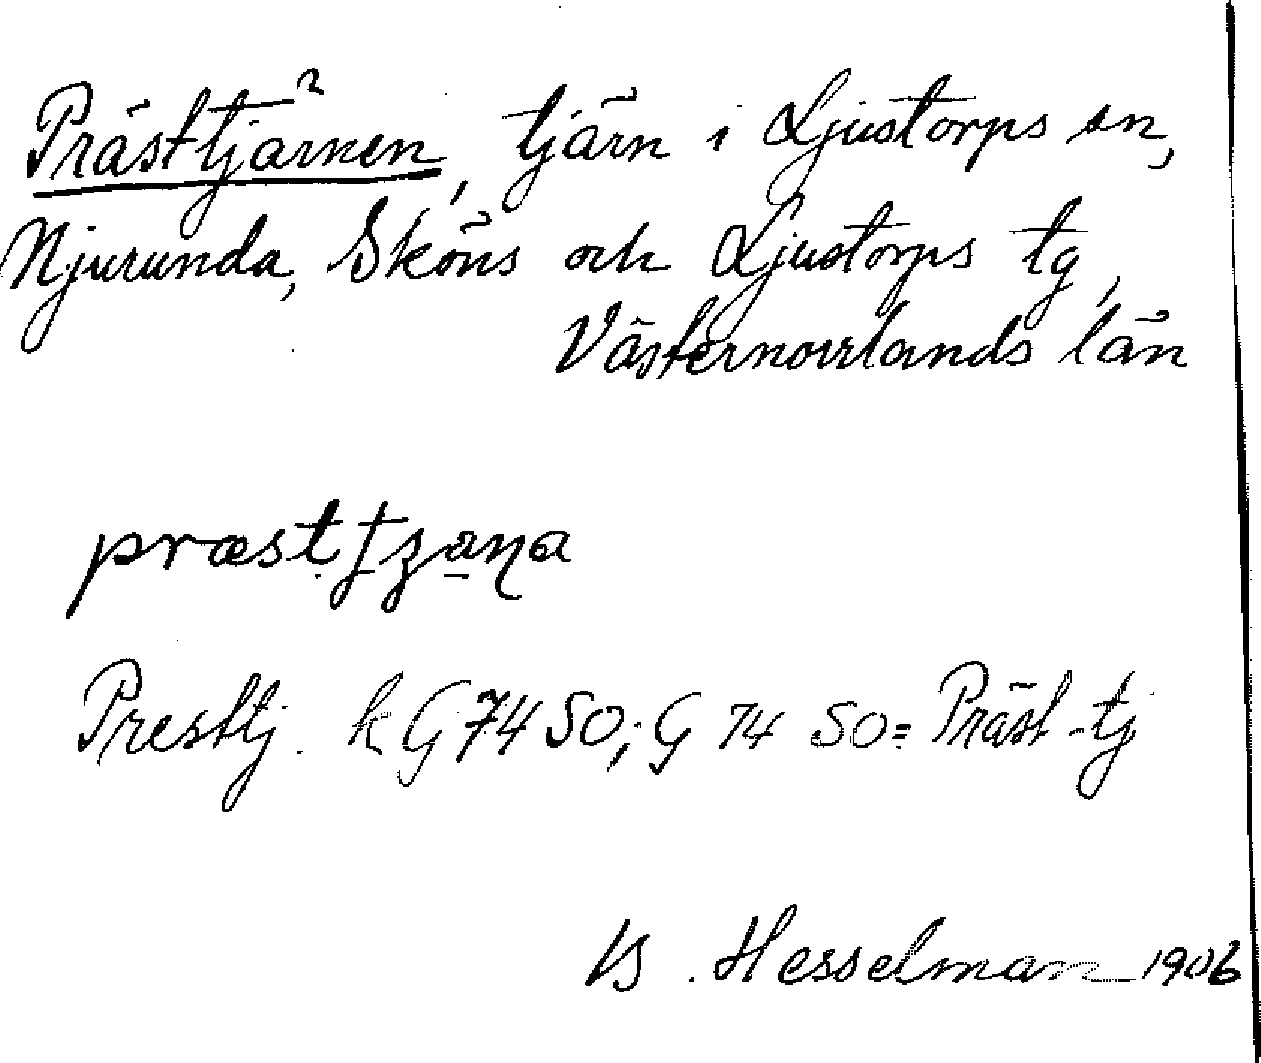 Prästtjärnen, tjärn i Ljustorps sn,
Njurunda, Sköns och Ljustorps tg,
Västernorrlands län
præstʃzana
Presttj. k G 74 50; G 74 50 = Präst-tj
B. Hesselman 1906